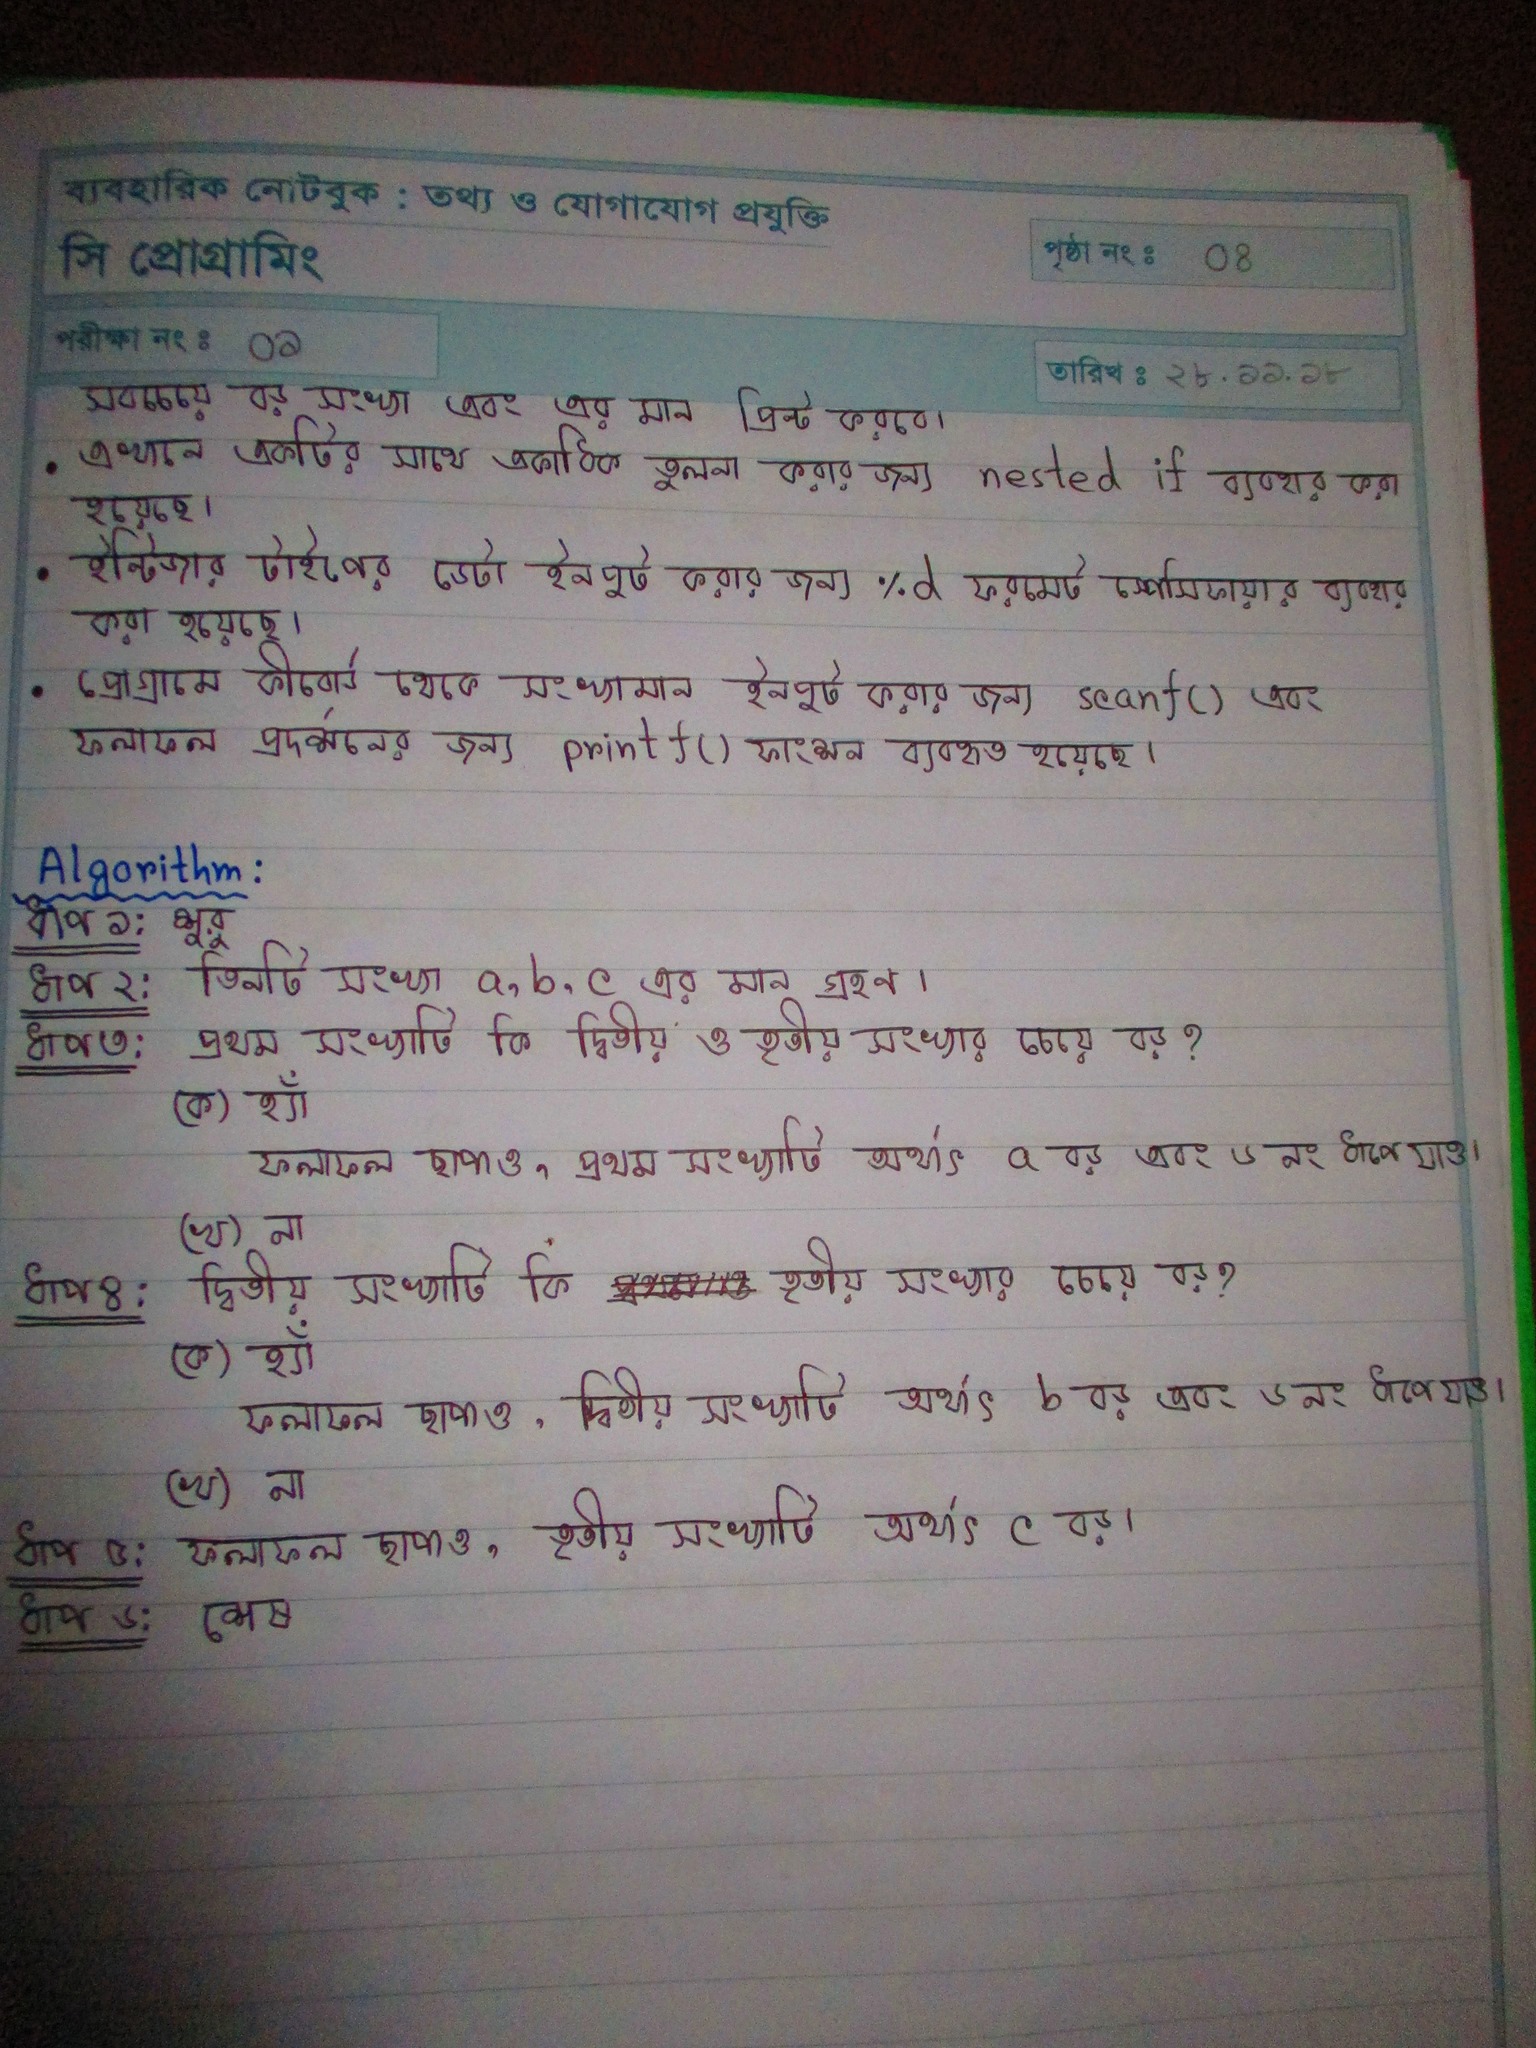 ব্যবহারিক নোটবুক : তথ্য ও যোগাযোগ প্রযুক্তি
সি প্রোগ্রামিং
পৃষ্ঠা নং : ০৪
পরীক্ষা নং : ০১
তারিখ : ২৮.১১.১৮
সবচেয়ে বড় সংখ্যা এবং এর মান প্রিন্ট করবে।
• এখানে একটির সাথে একাধিক তুলনা করার জন্য nested if ব্যবহার করা
হয়েছে।
• ইন্টিজার টাইপের ডেটা ইনপুট করার জন্য %d ফরমেট স্পেসিফায়ার ব্যবহার
করা হয়েছে।
• প্রোগ্রামে কীবোর্ড থেকে সংখ্যামান ইনপুট করার জন্য scanf() এবং
ফলাফল প্রদর্শনের জন্য printf() ফাংশন ব্যবহৃত হয়েছে।
Algorithm:
ধাপ ১: শুরু
ধাপ ২: তিনটি সংখ্যা a, b, c এর মান গ্রহণ।
ধাপ ৩: প্রথম সংখ্যাটি কি দ্বিতীয় ও তৃতীয় সংখ্যার চেয়ে বড়?
(ক) হ্যাঁ
ফলাফল ছাপাও, প্রথম সংখ্যাটি অর্থাৎ a বড় এবং ৬ নং ধাপে যাও।
(খ) না
ধাপ ৪: দ্বিতীয় সংখ্যাটি কি তৃতীয় সংখ্যার চেয়ে বড়?
(ক) হ্যাঁ
ফলাফল ছাপাও, দ্বিতীয় সংখ্যাটি অর্থাৎ b বড় এবং ৬ নং ধাপে যাও।
(খ) না
ধাপ ৫: ফলাফল ছাপাও, তৃতীয় সংখ্যাটি অর্থাৎ c বড়।
ধাপ ৬: শেষ